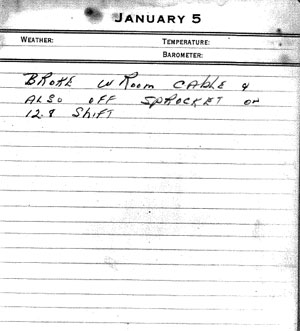 JANUARY 5
WEATHER: TEMPERATURE:
BAROMETER:
BROKE W ROOM CABLE &
ALSO OFF SPROCKET ON
12.8 Shift